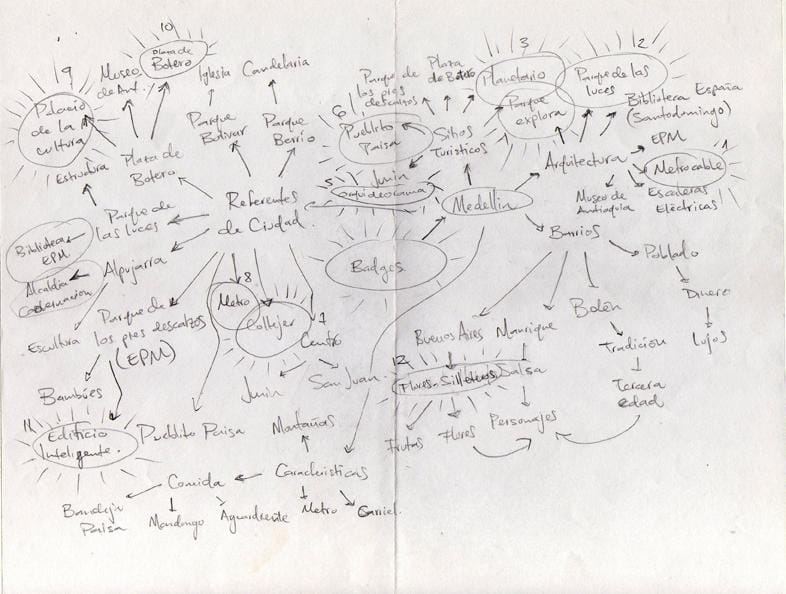 10
Plaza de
Botero
9
Museo
de Ant.
Iglesia Candelaria
Palacio
de la
cultura
Parque
Bolivar
Parque
Berrío
Estructura
Plaza de
Botero
Referentes
de Ciudad.
Parque de
las luces
Biblioteca
EPM
Alpujarra
Alcaldia
Gobernacion
Escultura
Parque de
los pies descalzos
(EPM)
8
Metro
Coltejer
7
Centro
Junin
San Juan
Bambúes
11
Edificio
Inteligente.
Pueblito Paisa
Montañas
Comida
Caracteristicas
Bandeja
Paisa
Mondongo
Aguardiente
Metro
Carriel.
Parque de
los pies
descalzos
Plaza
de Botero
6
Pueblito
Paisa
Sitios
Turisticos
5
Junin
orquideorama
Medellin
Badges
3
Planetario
Parque
explora
2
Parque de las
luces
Biblioteca España
(Santodomingo)
EPM
Arquitectura
1
Metrocable
Museo de
Antioquia
Escaleras
Eléctricas
Barrios
Poblado
Dinero
Lujos
Belén
Tradicion
Tercera
edad
Buenos Aires
Manrique
12
Flores-Silleteros
Salsa
Frutas
Flores
Personajes